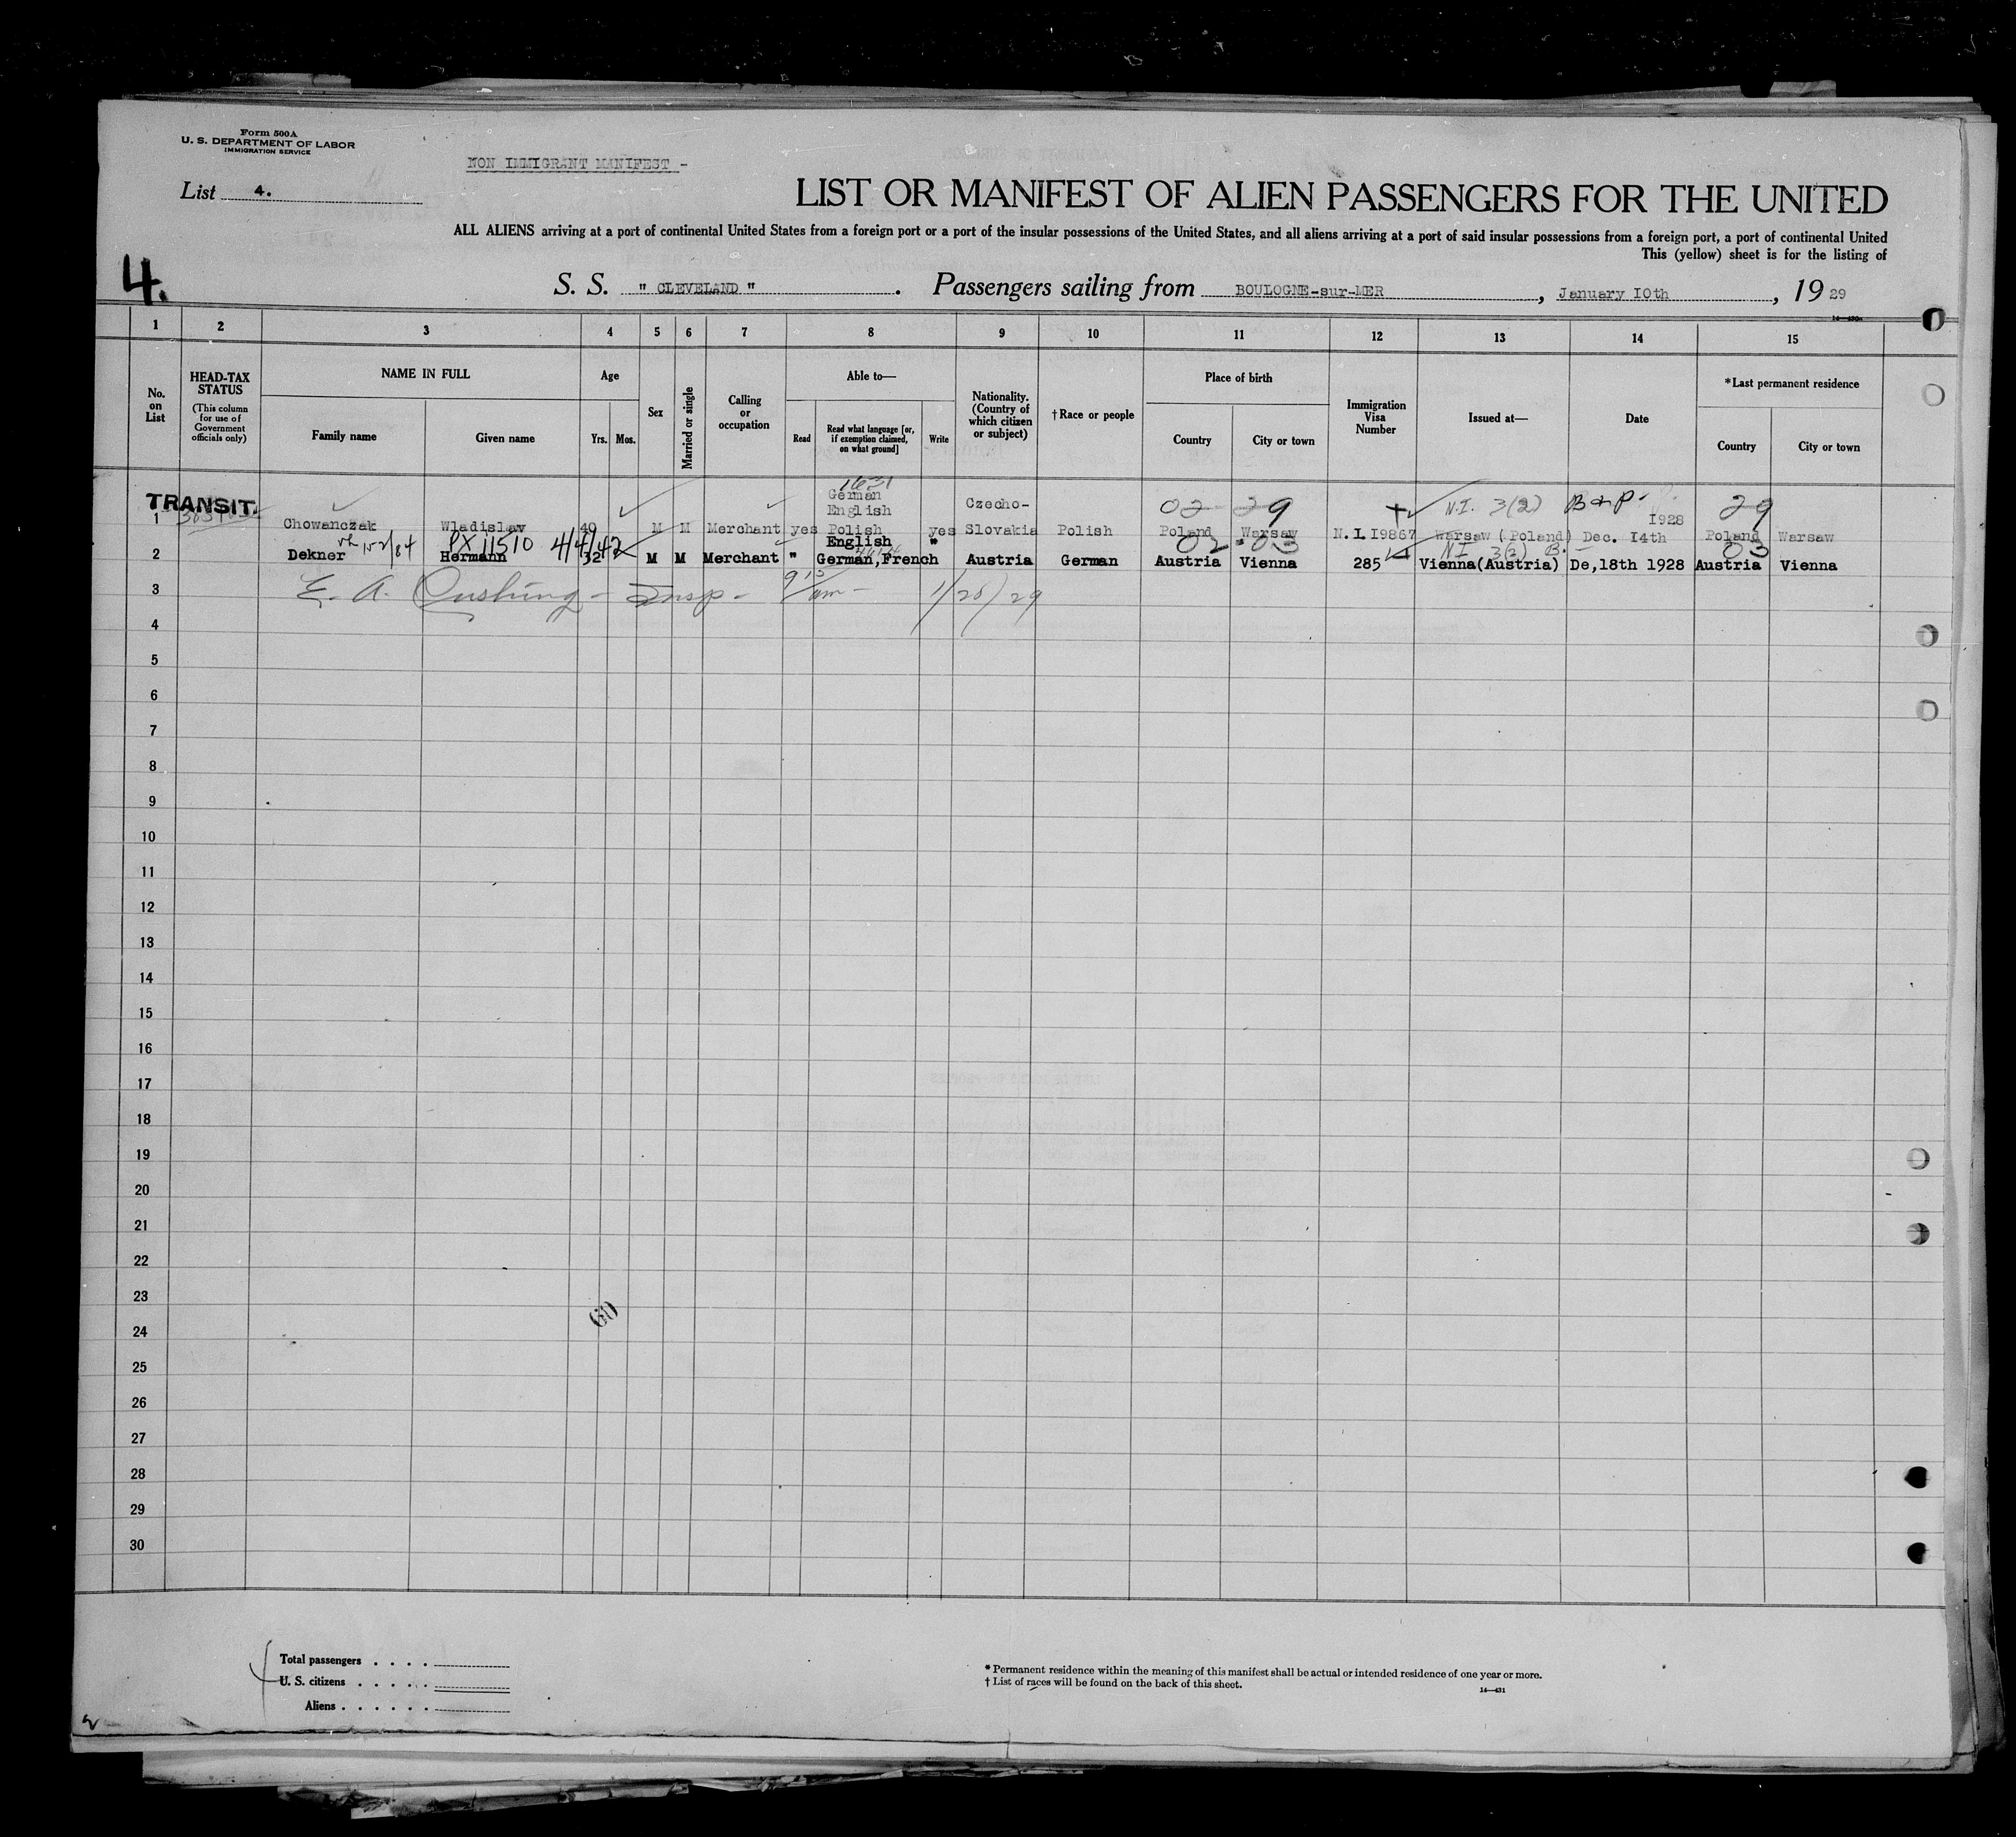 Form 500A
U. S. DEPARTMENT OF LABOR
IMMIGRATION SERVICE
NON IMMIGRANT MANIFEST -
List 4.
LIST OR MANIFEST OF ALIEN PASSENGERS FOR THE UNITED
ALL ALIENS arriving at a port of continental United States from a foreign port or a port of the insular possessions of the United States, and all aliens arriving at a port of said insular possessions from a foreign port, a port of continental United
This (yellow) sheet is for the listing of
4.
S. S. " CLEVELAND " . Passengers sailing from BOULOGNE-sur-MER , January 10th , 19 29
1 2 3 4 5 6 7 8 9 10 11 12 13 14 15
No. on List
HEAD-TAX STATUS
(This column for use of Government officials only)
NAME IN FULL
Family name
Given name
Age
Yrs. Mos.
Sex
Married or single
Calling or occupation
Able to—
Read
Read what language [or, if exemption claimed, on what ground]
Write
Nationality. (Country of which citizen or subject)
† Race or people
Place of birth
Country
City or town
Immigration Visa Number
Issued at—
Date
*Last permanent residence
Country
City or town
TRANSIT.
1631
German
English
Czecho-
02 29 N.I. 3(2) B & P - 29
1928
1 Chowanczak Wladislav 40 M M Merchant yes Polish yes Slovakia Polish Poland Warsaw N.I.I9867 Warsaw (Poland) Dec. I4th Poland Warsaw
PX 11510 4/4/42 English " 02 - 03 NI 3(2) B. - 03
2 Dekner Hermann 32 M M Merchant " German,French Austria German Austria Vienna 285 Vienna(Austria) De,18th 1928 Austria Vienna
3 E. A. Cushing - Insp - 1/20/29
4
5
6
7
8
9
10
11
12
13
14
15
16
17
18
19
20
21
22
23
(60)
24
25
26
27
28
29
30
Total passengers . . . .
U. S. citizens . . . . . .
Aliens . . . . . .
* Permanent residence within the meaning of this manifest shall be actual or intended residence of one year or more.
† List of races will be found on the back of this sheet.
14—431